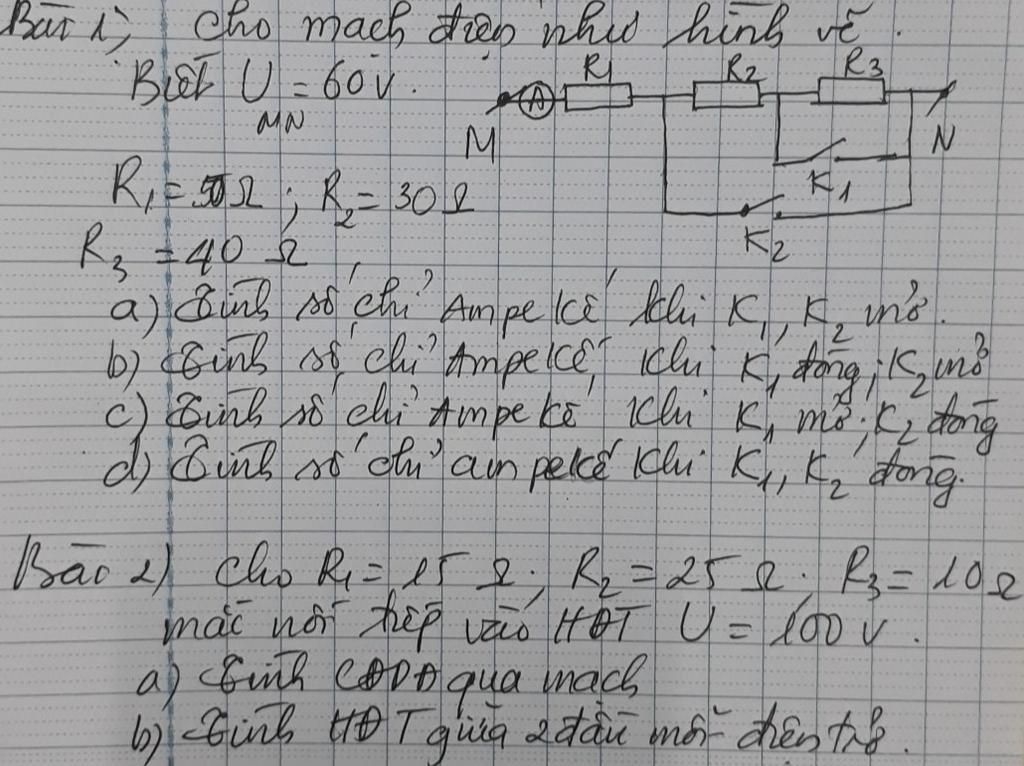 Bài 1) Cho mạch điện như hình vẽ.
Biết U = 60V.
MN
R1 R2 R3
A
M N
K1
K2
R1 = Ω; R2 = 30 Ω
R3 = 40 Ω
a) Tính số chỉ Ampe kế khi K1, K2 mở.
b) Tính số chỉ Ampe kế khi K1 đóng; K2 mở
c) Tính số chỉ Ampe kế khi K1 mở; K2 đóng
d) Tính số chỉ ampe kế khi K1, K2 đóng.
Bài 2) Cho R1 = 15 Ω; R2 = 25 Ω; R3 = 10 Ω
mắc nối tiếp vào HĐT U = 100 V.
a) Tính CĐDĐ qua mạch
b) Tính HĐT giữa 2 đầu mỗi điện trở.